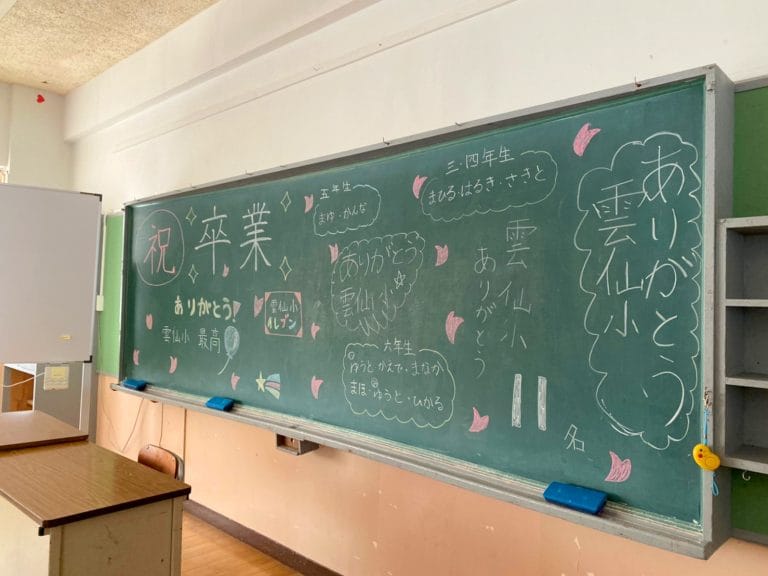 祝 卒業
ありがとう!
雲仙小 最高
雲仙小
イレブン
五年生
まゆ・かんな
ありがとう
雲仙小
六年生
ゆうと かえで・まなか
まほ・ゆうと・ひかる
三・四年生
まひる・はるき・ささと
雲仙小
ありがとう
11名
ありがとう
雲仙小